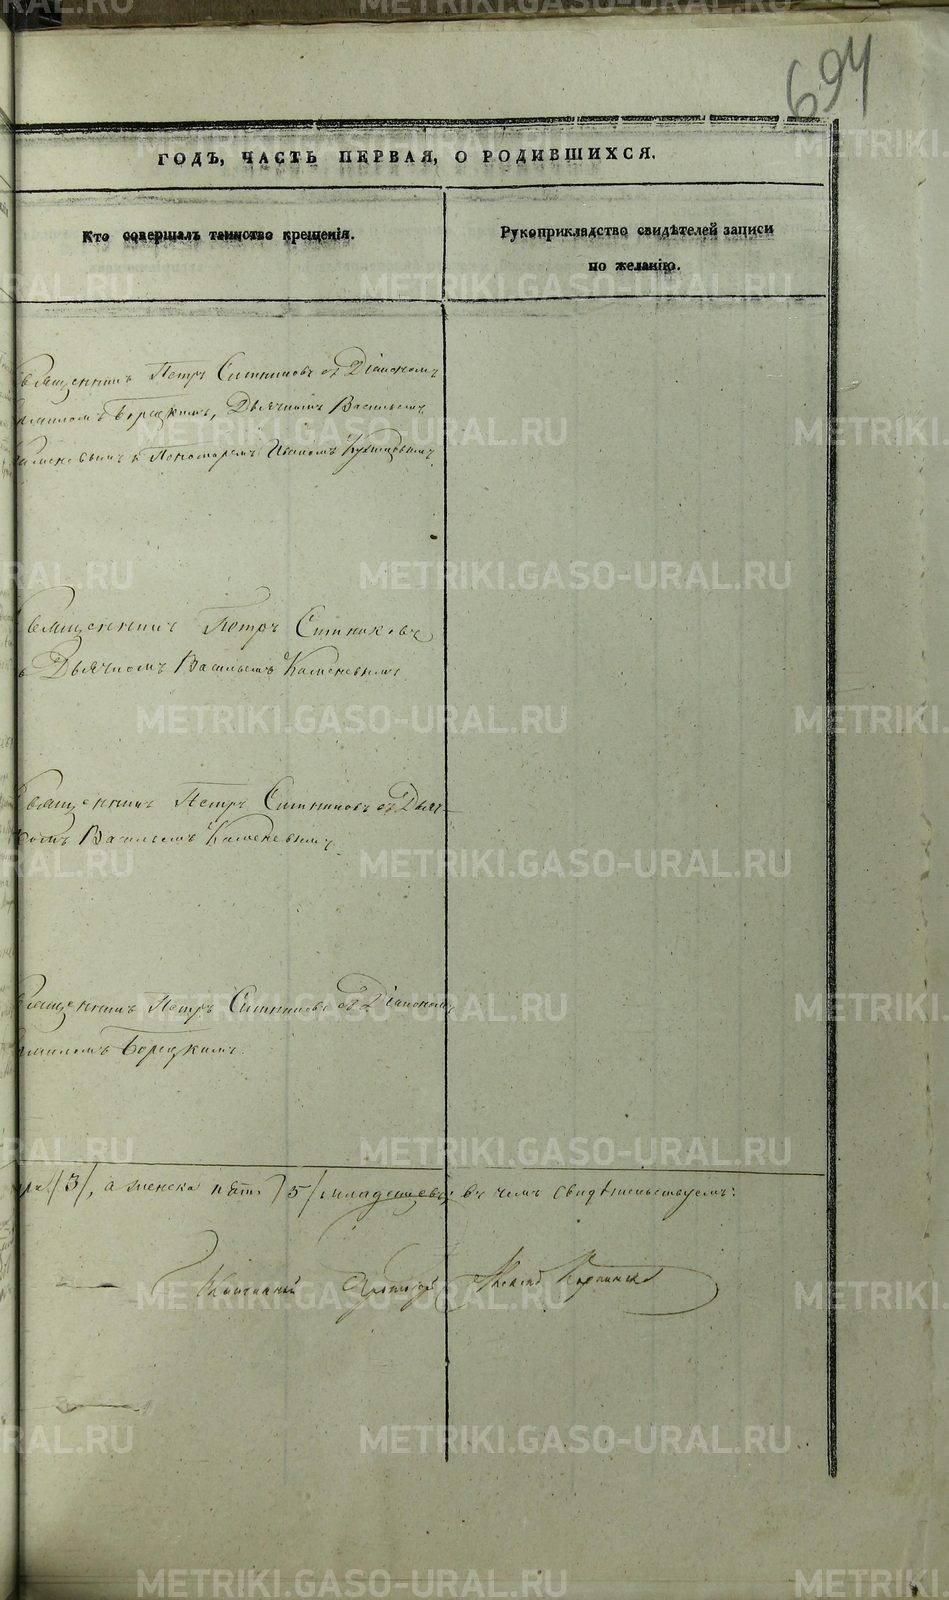 694
ГОДЪ, ЧАСТЬ ПЕРВАЯ, О РОДИВШИХСЯ.
Кто совершалъ таинство крещенія.
Рукоприкладство свидѣтелей записи
по желанію.
Священникъ Петръ Ситниковъ съ Діакономъ
Борецкимъ, Дьячкомъ Васильемъ
Каменевымъ и Пономаремъ Иваномъ
Священникъ Петръ Ситниковъ
съ Дьячкомъ Васильемъ Каменевымъ
Священникъ Петръ Ситниковъ съ Дьяч-
комъ Васильемъ Каменевымъ
Священникъ Петръ Ситниковъ съ Діакономъ
Борецкимъ.
три /3/, а женска пять /5/ младенцевъ; въ чемъ свидѣтельствуемъ:
METRIKI.GASO-URAL.RU